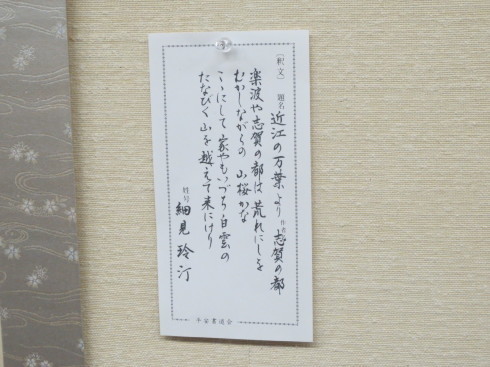 〔釈文〕 題名 近江の万葉より 作者 志賀の都
楽波や志賀の都は荒れにしを
むかしながらの山桜かな
こゝにして家やもいづち白雲の
たなびく山を越えて来にけり
姓号 細見玲汀
平安書道会